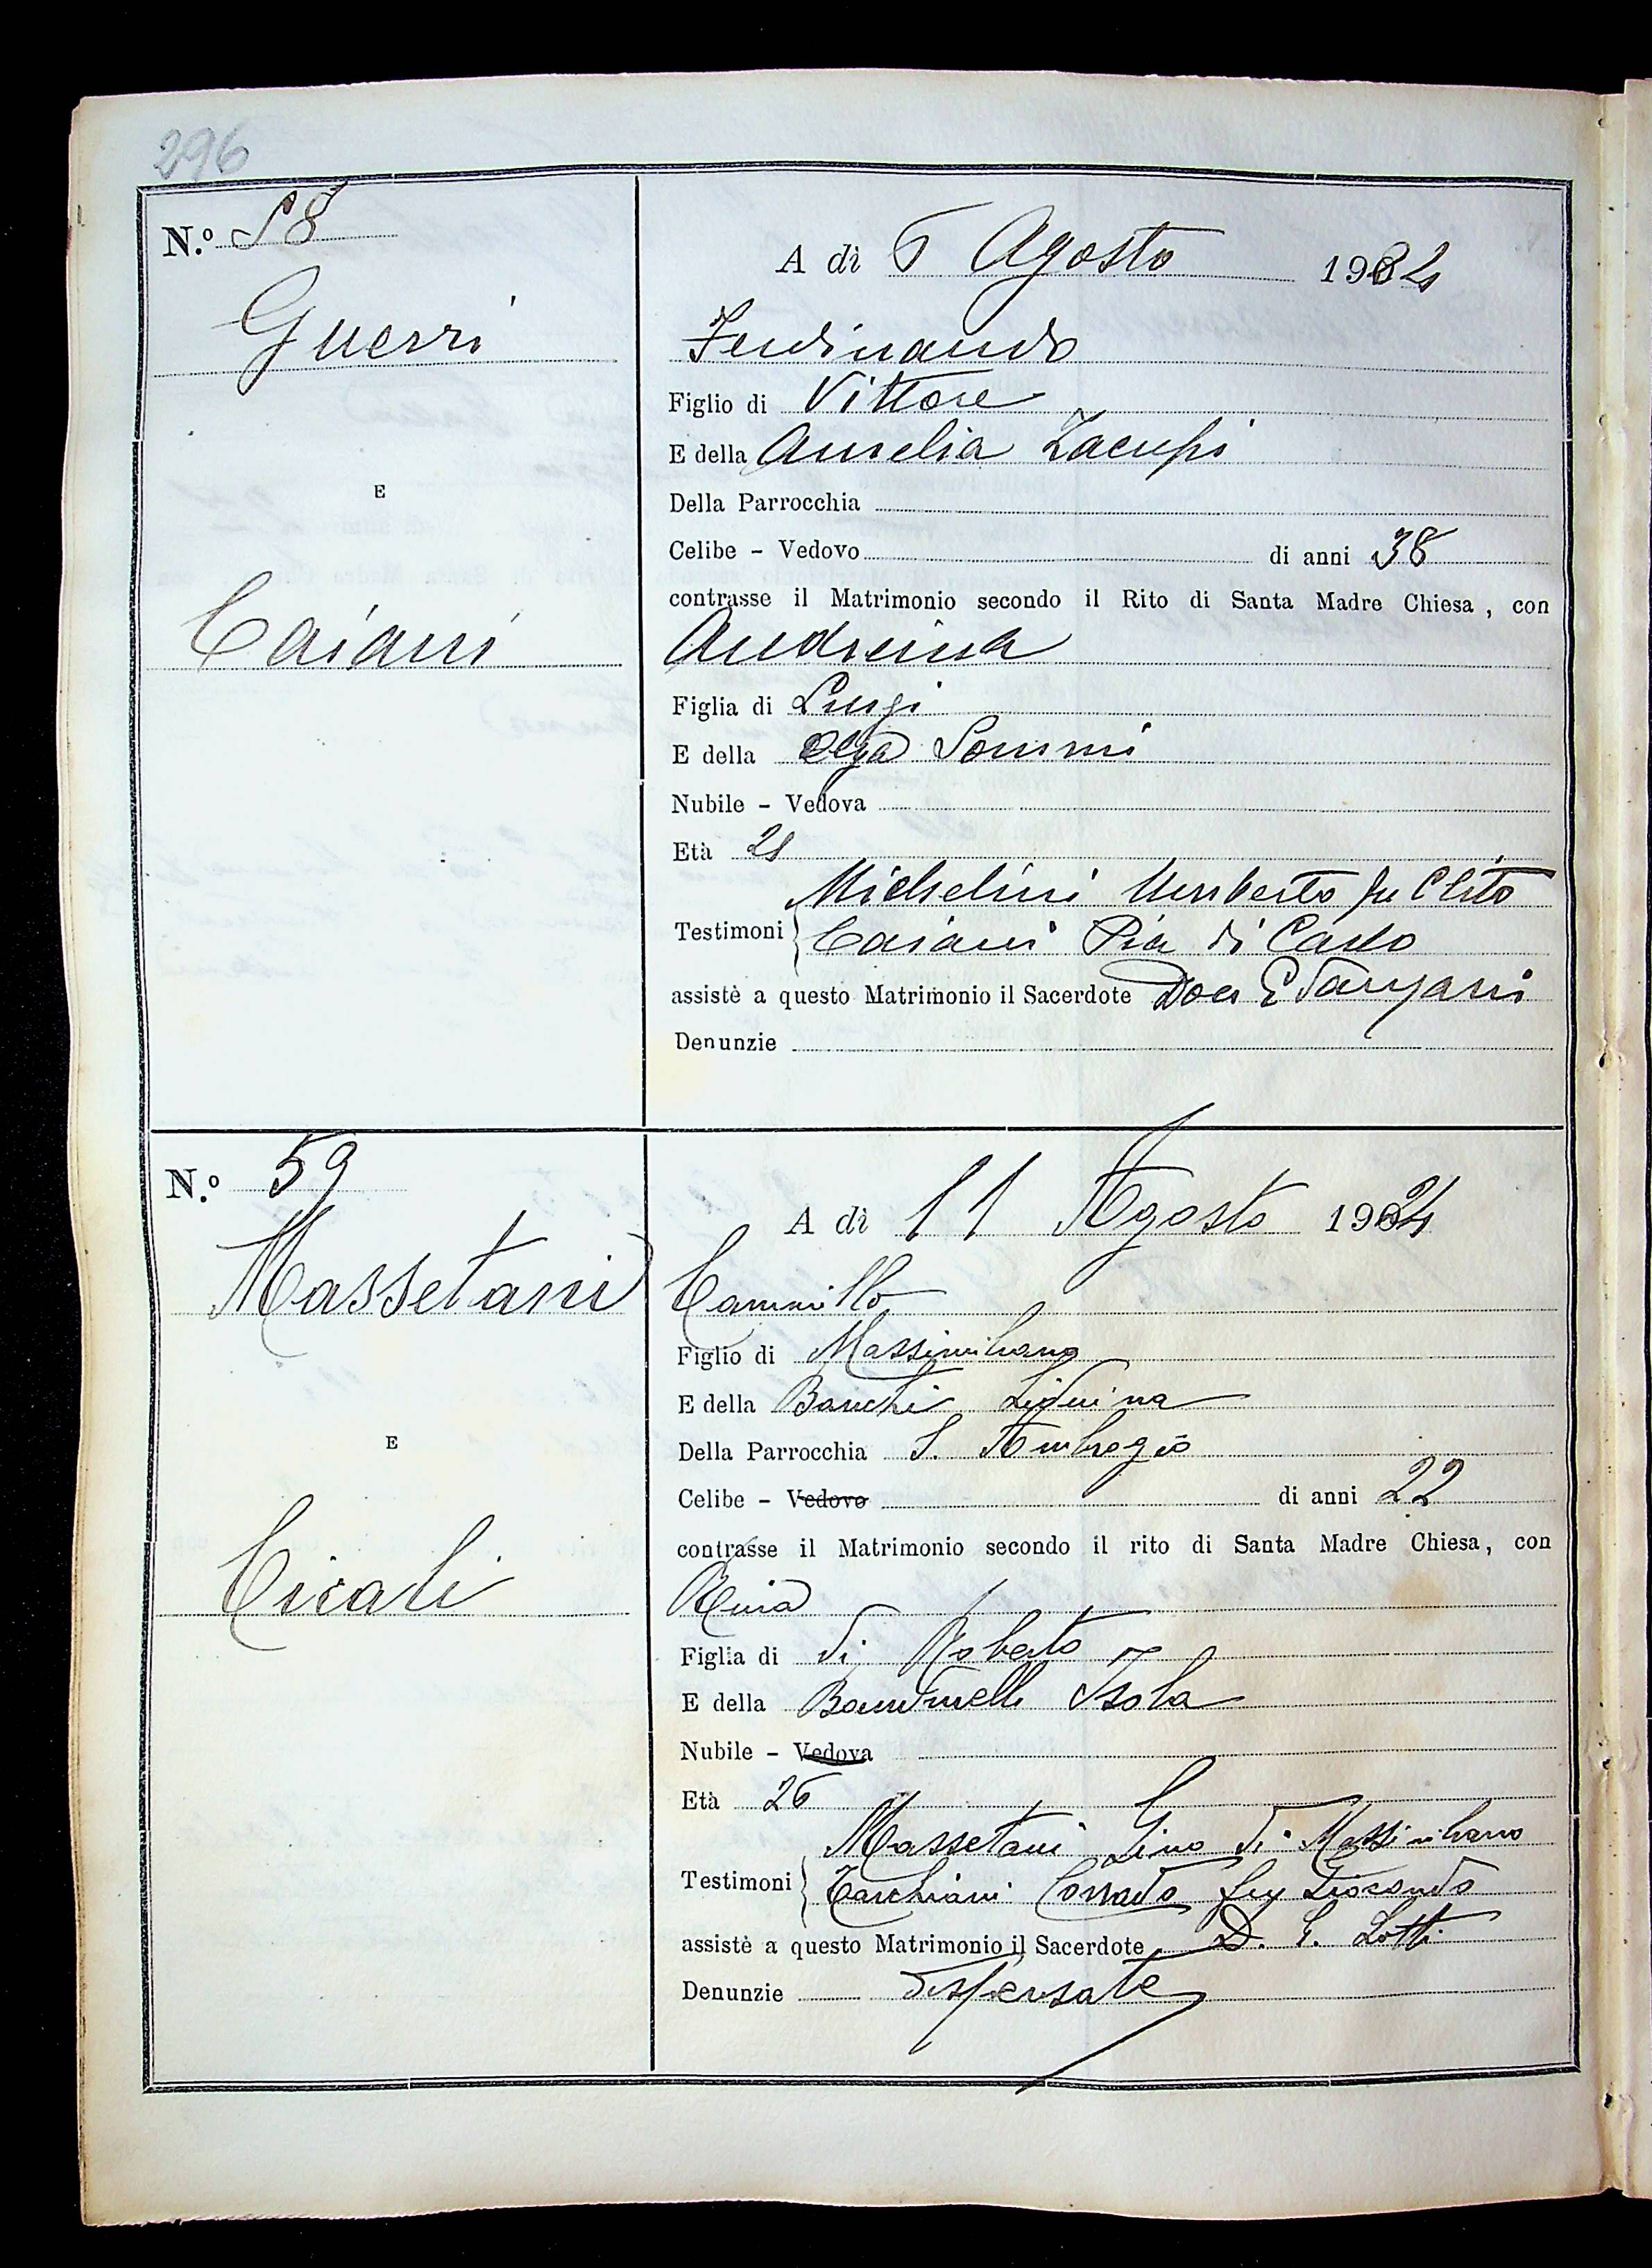 296
N.º 58
A dì 5 Agosto 1924
Guerri
Ferdinando
Figlio di Vittore
E della Aurelia Zacupi
Della Parrocchia
E
Celibe - Vedovo di anni 38
contrasse il Matrimonio secondo il Rito di Santa Madre Chiesa, con
Caiani
Andreina
Figlia di Luigi
E della Olga Sommi
Nubile - Vedova
Età 21
Michelini Umberto fu Clito
Testimoni Caiani Pia di Carlo
assistè a questo Matrimonio il Sacerdote Don E
Denunzie
N.º 59
A dì 11 Agosto 1924
Massetani
Cammillo
Figlio di Massimiliano
E della Banchi Liduina
Della Parrocchia S. Ambrogio
E
Celibe - Vedovo di anni 22
contrasse il Matrimonio secondo il rito di Santa Madre Chiesa, con
Cicali
Figlia di di Roberto
E della Bandinelli Isola
Nubile - Vedova
Età 26
Massetani Gino di Massimiliano
Testimoni Tarchiani Corrado fu Giocondo
assistè a questo Matrimonio il Sacerdote D. G. Lotti
Denunzie dispensate